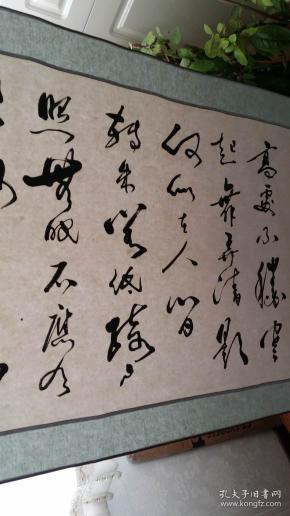 高處不勝寒
起舞弄清影
何似在人间
轉朱閣低綺户
照無眠不應有
孔夫子旧书网
www.kongfz.com